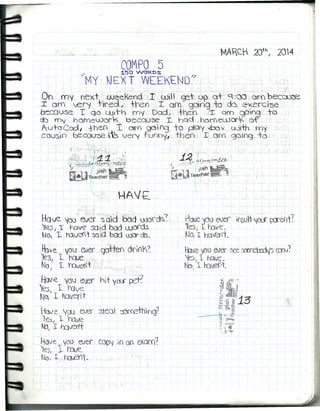 MARCH 20th, 2014
COMPO 5
150 WORDS
"MY NEXT WEEKEND"
On my next weekend I will get up at 9:00 am because
I am very tired, then I am going to do exercise
because I go with my Dad, then I am going to
do my homework because I had homework of
AutoCad, then I am going to play xbox with my
cousin because is very funny, then I am going to
11
12
Teacher
Teacher
HAVE
Have you ever said bad words?
Yes, I have said bad words
No, I haven't said bad words.
Have you ever gotten drink?
Yes, I have
No, I haven't
Have you ever hit your pet?
Yes, I have
No I haven't
Have you ever steal something?
Yes, I have
No, I haven't
Have you ever copy in an exam?
Yes, I have.
No, I haven't.
Have you ever insult your parent?
Yes, I have.
No, I haven't.
Have you ever see somebody's
Yes, I have.
No, I haven't.
13